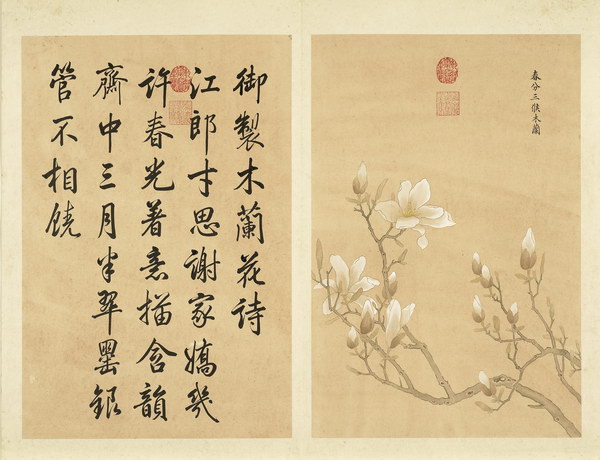 春分三候木蘭
御製木蘭花詩
江郎才思謝家嬌幾
許春光著意描含韻
齋中三月半翠罍銀
管不相饒